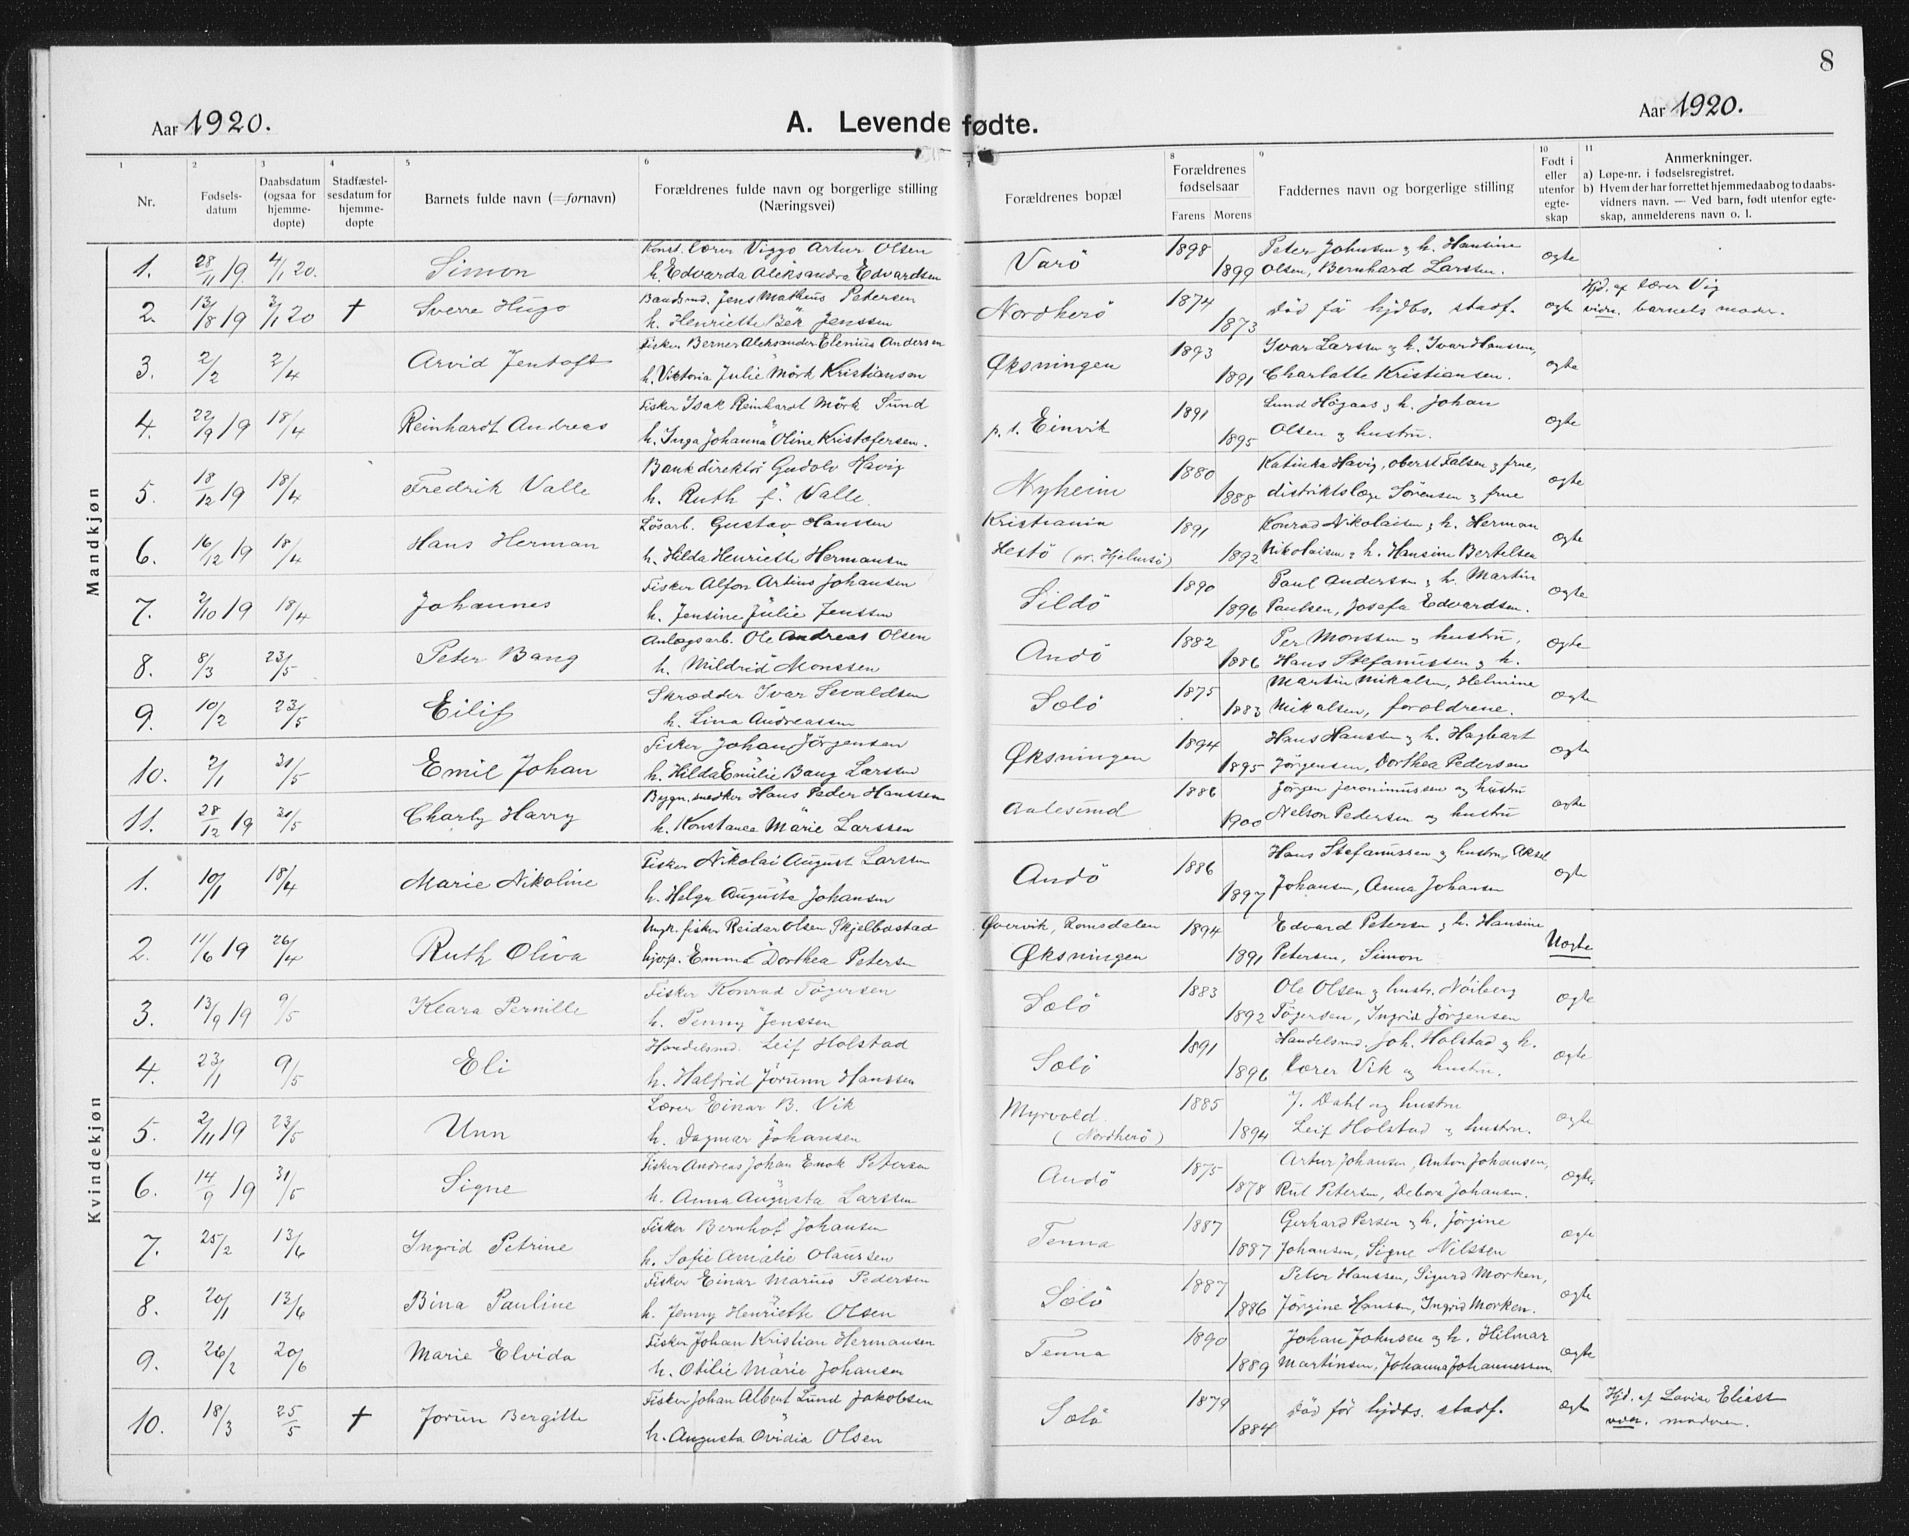 8
Aar 1920.
A. Levendefødte.
Aar 1920.
1 2 3 4 5 6 7 8 9 10 11
Nr.
Fødsels-
datum
Daabsdatum
(ogsaa for
hjemme-
døpte)
Stadfæstel-
sesdatum for
hjemme-
døpte
Barnets fulde navn (=fornavn)
Forældrenes fulde navn og borgerlige stilling
(Næringsvei)
Forældrenes bopæl
Forældrenes
fødselsaar
Farens Morens
Faddernes navn og borgerlige stilling
Født i
eller
utenfor
egte-
skap
Anmerkninger.
a) Løpe-nr. i fødselsregistret.
b) Hvem der har forrettet hjemmedaab og to daabs-
vidners navn. — Ved barn, født utenfor egte-
skap, anmelderens navn o. l.
Mandkjøn
Konst. lærer Viggo Artur Olsen 1898 Peter Johnsen og h. Hansine
1. 28/11 19 4/1 20. Simon h. Edvarda Aleksandra Edvardsen Varö 1899 Olsen, Bernhard Larssen. ægte
Baadsmd. Jens Matheus Petersen 1874 Hjd. af lærer Vig
2. 13/8 19 3/1 20 † Sverre Hugo h. Henriette Bek Jenssen Nordherö 1873 Död fö hjdbs. stadf. ægte vidn. barnets moder.
Fisker Berner Aleksander Elenius Andersen 1893 Ivar Larssen og h. Ivar Hanssen,
3. 2/2 2/4 Arvid Jentoft h. Viktoria Julie Mörk Kristiansen Øksningen 1891 Charlotte Kristiansen. ægte
Fisker Isak Reinhardt Mörk Sund 1891 Lund Högaas og h. Johan
4. 22/9 19 18/4 Reinhardt Andreas h. Inga Johanna Oline Kristofersen. p. t. Einvik 1895 Olsen og hustru. ægte
Bankdirektör Gudolv Havig 1880 Katinka Havig, oberst Falsen og frue,
5. 18/12 19 18/4 Fredrik Valle h. Ruth f. Valle Nyheim 1888 distriktslæge Sörensen og frue ægte
Lösarb. Gustav Hanssen Kristiania 1891 Konrad Nikolaisen og h. Herman
6. 16/12 19 18/4 Hans Herman h. Hilda Henriette Hermansen Hestö (pr. Hjelmsö) 1892 Nikolaisen og h. Hansine Bertelsen ægte
Fisker Alfon Artius Johansen 1890 Paul Anderssen og h. Martin
7. 2/10 19 18/4 Johannes h. Jensine Julie Jenssen Sildö 1896 Paulsen, Josefa Edvardsen. ægte
Anlægsarb. Ole Andreas Olsen 1882 Per Monssen og hustru,
8. 8/3 23/5 Peter Bang h. Mildrid Monssen Andö 1886 Hans Stefanussen og h. ægte
Skrædder Ivar Sevaldsen 1875 Martin Mikalsen, Helmine
9. 10/2 23/5 Eilif h. Lina Andreassen Sölö 1883 Mikalsen, forældrene. ægte
Fisker Johan Jörgensen 1894 Hans Hanssen og h. Hagbart
10. 2/1 31/5 Emil Johan h. Hilda Emilie Bang Larssen Øksningen 1895 Jörgensen, Dorthea Pedersen ægte
Bygn. snedker Hans Peder Hanssen 1886 Jörgen Jeronimussen og hustru
11. 28/12 19 31/5 Charly Harry h. Konstance Marie Larssen Aalesund 1900 Nelson Pedersen og hustru ægte
Kvindekjøn
Fisker Nikolai August Larssen 1886 Hans Stefanussen og hustru, Aksel
1. 10/1 18/4 Marie Nikoline h. Helga Augusta Johansen Andö 1897 Johansen, Anna Johansen ægte
Ungk. fisker Reidar Olsen Skjelbostad Øvervik, Romsdalen 1894 Edvard Petersen og h. Hansine
2. 11/6 19 26/4 Ruth Oliva hjpp. Emma Dorthea Petersen Øksningen 1891 Petersen, Simon Uægte
Fisker Konrad Tögersen 1883 Ole Olsen og hustr. Nöiberg
3. 13/9 19 9/5 Klara Pernille h. Penny Jenssen Sölö 1892 Tögersen, Ingrid Jörgensen ægte
Handelsmd. Leif Holstad 1891 Handelsmd. Joh. Holstad og h.
4. 23/1 9/5 Eli h. Halfrid Jorunn Hanssen Sölö 1896 Lærer Vik og hustru. ægte
Lærer Einar B. Vik Myrvold 1885 J. Dahl og hustru
5. 2/11 19 23/5 Unn h. Dagmar Johansen (Nordherö) 1894 Leif Holstad og hustru. ægte
Fisker Andreas Johan Enok Petersen 1875 Artur Johansen, Anton Johansen,
6. 14/9 19 31/5 Signe h. Anna Augusta Larssen Andö 1878 Rut Petersen, Debora Johansen. ægte
Fisker Bernhof Johansen 1887 Gerhard Persen og h. Jörgine
7. 25/2 13/6 Ingrid Petrine h. Sofie Amalie Olaussen Tenna 1887 Johansen, Signe Nilssen ægte
Fisker Einar Marius Pedersen 1887 Peter Hanssen, Sigurd Morken,
8. 20/1 13/6 Bina Pauline h. Jenny Henriette Olsen Sölö 1886 Jörgine Hansen, Ingrid Morken. ægte
Fisker Johan Kristian Hermansen 1890 Johan Johnsen og h. Hilmar
9. 26/2 20/6 Marie Elvida h. Otilie Marie Johansen Tenna 1889 Martinsen, Johanna Johannessen ægte
Fisker Johan Albert Lund Jakobsen 1879 Hjd. af Lovise Eliass
10. 18/3 25/5 † Jorun Bergitte h. Augusta Ovidia Olsen Sölö 1884 Död för hjdbs. stadf. ægte moderen.